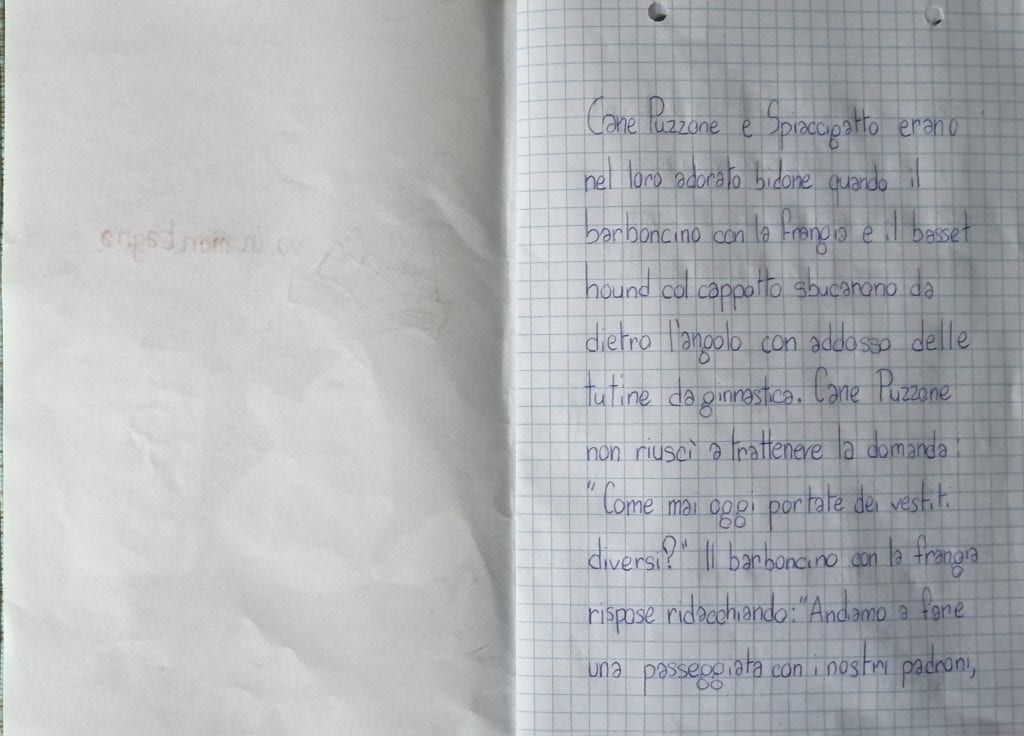 va in montagna
Cane Puzzone e Spiaccigatto erano
nel loro adorato bidone quando il
barboncino con la frangia e il basset
hound col cappotto sbucarono da
dietro l'angolo con addosso delle
tutine da ginnastica. Cane Puzzone
non riuscì a trattenere la domanda:
"Come mai oggi portate dei vestiti
diversi?" Il barboncino con la frangia
rispose ridacchiando: "Andiamo a fare
una passeggiata con i nostri padroni,